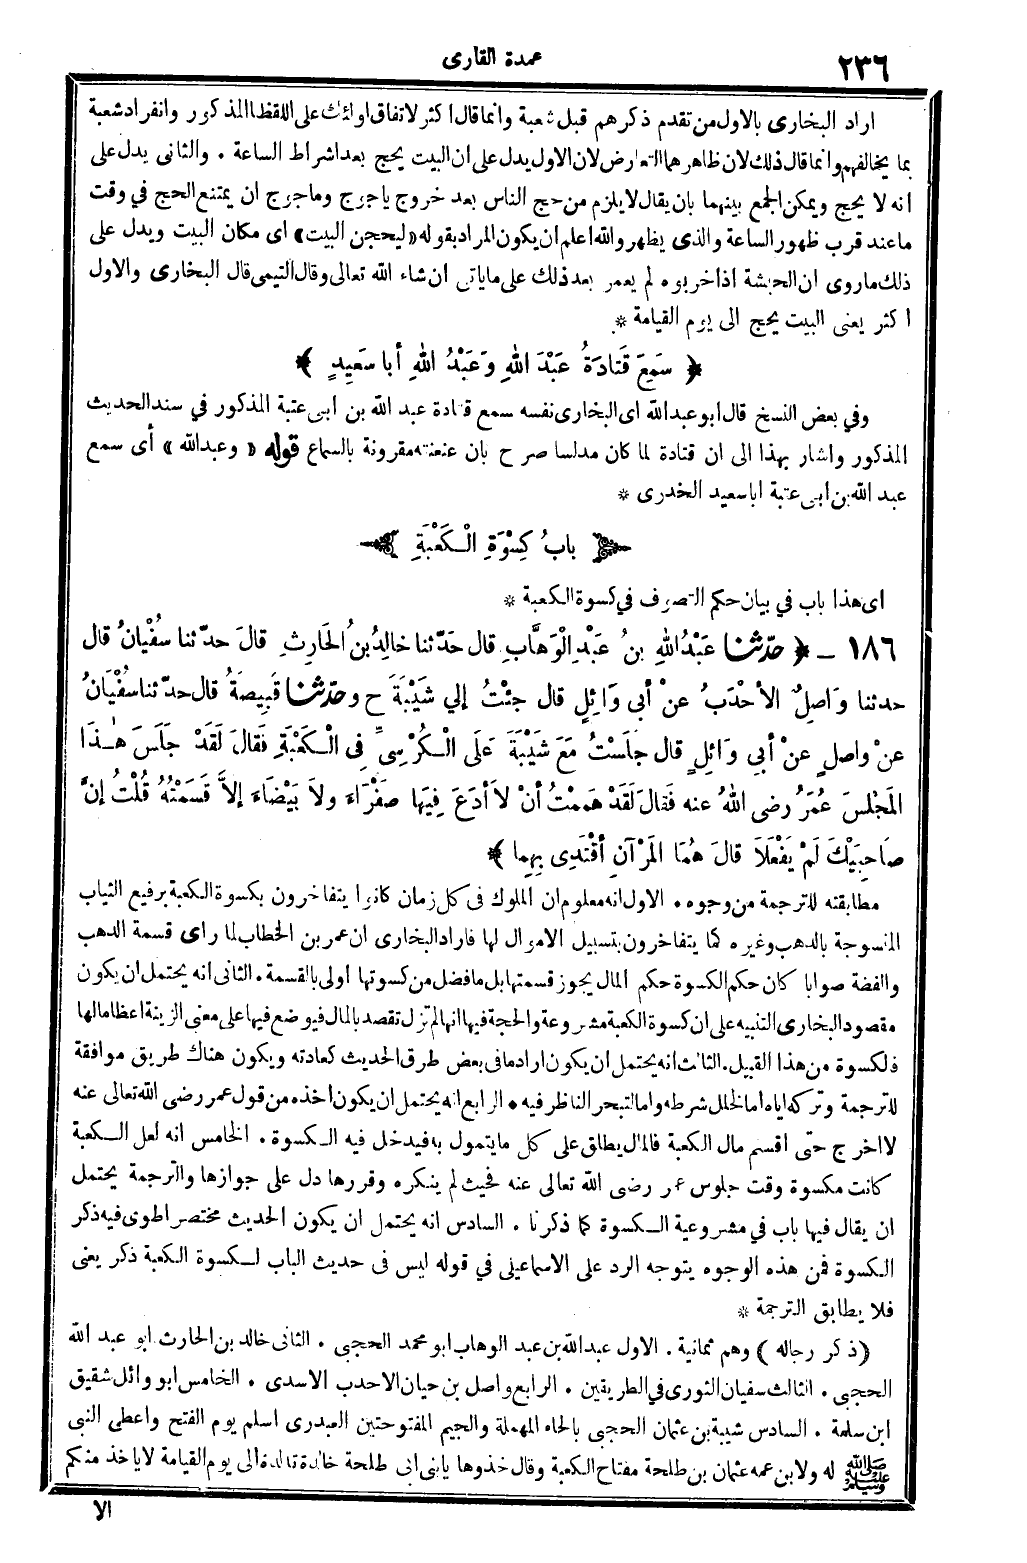 ٢٣٦
عمدة القارى
اراد البخارى بالاول من تقدم ذكرهم قبل شعبة وانما قال اكثر لاتفاق اولئك على اللفظ المذكور وانفراد شعبة
بما يخالفهم وانما قال ذلك لان ظاهرهما التعارض لان الاول يدل على ان البيت يحج بعد اشراط الساعة . والثانى يدل على
أنه لا يحج ويمكن الجمع بينهما بان يقال لا يلزم من حج الناس بعد خروج ياجوج وماجوج ان يمتنع الحج في وقت
ما عند قرب ظهور الساعة والذى يظهر والله اعلم ان يكون المراد بقوله «ليحجن البيت» اى مكان البيت ويدل على
ذلك ماروى ان الحبشة اذا خربوه لم يعمر بعد ذلك على ماياتى ان شاء الله تعالى وقال التيمى قال البخارى والاول
اكثر يعنى البيت يحج الى يوم القيامة *
﴿ سَمِعَ قَتَادَةُ عَبْدَ اللهِ وَعَبْدُ اللهِ أبا سَعِيدٍ ﴾
وفي بعض النسخ قال ابو عبد الله اى البخارى نفسه سمع قتادة عبد الله بن ابى عتبة المذكور في سند الحديث
المذكور واشار بهذا الى ان قتادة لما كان مدلسا صرح بان عنعنته مقرونة بالسماع قوله « وعبدالله » أى سمع
عبد الله بن ابى عتبة اباسعيد الخدرى *
﴿ بابُ كِسْوَةِ الْكَعْبَةِ ﴾
اى هذا باب في بيان حكم التصرف في كسوة الكعبة *
١٨٦ – ﴿ حدّثنا عَبْدُ اللهِ بنُ عَبْدِ الْوَهَّابِ قال حَدّثنا خالِدُ بنُ الحَارِثِ قالَ حدّثنا سُفْيانُ قال
حدثنا وَاصِلٌ الأحْدَبُ عنْ أبي وَائِلٍ قال جئْتُ إلي شَيْبَةَ ح وحدّثنا قَبِيصَةُ قال حدّثنا سُفْيَانُ
عنْ واصلٍ عنْ أبي وَائِلٍ قال جَلَسْتُ مَعَ شَيْبَةَ عَلَى الْكُرْسِيِّ فِي الْكَعْبَةِ فَقالَ لَقَدْ جَلَسَ هٰذَا
المَجْلِسَ عُمَرُ رضى اللهُ عنه فَقالَ لَقَدْ هَمَمْتُ أنْ لاَ أدَعَ فِيهَا صَفْرَاءَ ولاَ بَيْضَاءَ إلاَّ قَسَمْتُهُ قُلْتُ إنَّ
صَاحِبَيْكَ لَمْ يَفْعَلاَ قالَ هُمَا المَرْآنِ أقْتَدِى بِهِما ﴾
مطابقته للترجمة من وجوه . الاول انه معلوم ان الملوك فى كل زمان كانوا يتفاخرون بكسوة الكعبة برفيع الثياب
المنسوجة بالذهب وغيره كما يتفاخرون بتسبيل الاموال لها فاراد البخارى ان عمر بن الخطاب لما راى قسمة الذهب
والفضة صوابا كان حكم الكسوة حكم المال يجوز قسمتها بل مافضل من كسوتها أولى بالقسمة . الثانى انه يحتمل ان يكون
مقصود البخارى التنبيه على ان كسوة الكعبة مشروعة والحجة فيها انها لم تزل تقصد بالمال فيوضع فيها على معنى الزينة اعظاما لها
فالكسوة من هذا القبيل . الثالث انه يحتمل ان يكون اراد ما فى بعض طرق الحديث كعادته ويكون هناك طريق موافقة
للترجمة وتركه اياه اما لخلل شرطه واما لتبحر الناظر فيه . الرابع انه يحتمل ان يكون اخذه من قول عمر رضى الله تعالى عنه
لا اخرج حتى اقسم مال الكعبة فالمال يطلق على كل مايتمول به فيدخل فيه الكسوة . الخامس انه لعل الكعبة
كانت مكسوة وقت جلوس عمر رضى الله تعالى عنه فحيث لم ينكره وقررها دل على جوازها والترجمة يحتمل
ان يقال فيها باب في مشروعية الكسوة كما ذكرنا . السادس انه يحتمل ان يكون الحديث مختصرا طوى فيه ذكر
الكسوة فمن هذه الوجوه يتوجه الرد على الاسماعيلى في قوله ليس فى حديث الباب لكسوة الكعبة ذكر يعنى
فلا يطابق الترجمة *
(ذكر رجاله) وهم ثمانية . الاول عبدالله بن عبد الوهاب ابو محمد الحجبى . الثانى خالد بن الحارث ابو عبد الله
الحجبى . الثالث سفيان الثورى في الطريقين . الرابع واصل بن حيان الاحدب الاسدى . الخامس ابو وائل شقيق
ابن سلمة . السادس شيبة بن عثمان الحجبى بالحاء المهملة والجيم المفتوحتين العبدرى اسلم يوم الفتح واعطى النبى
ﷺ له ولابن عمه عثمان بن طلحة مفتاح الكعبة وقال خذوها يابنى ابى طلحة خالدة تالدة الى يوم القيامة لا ياخذ منكم
الا